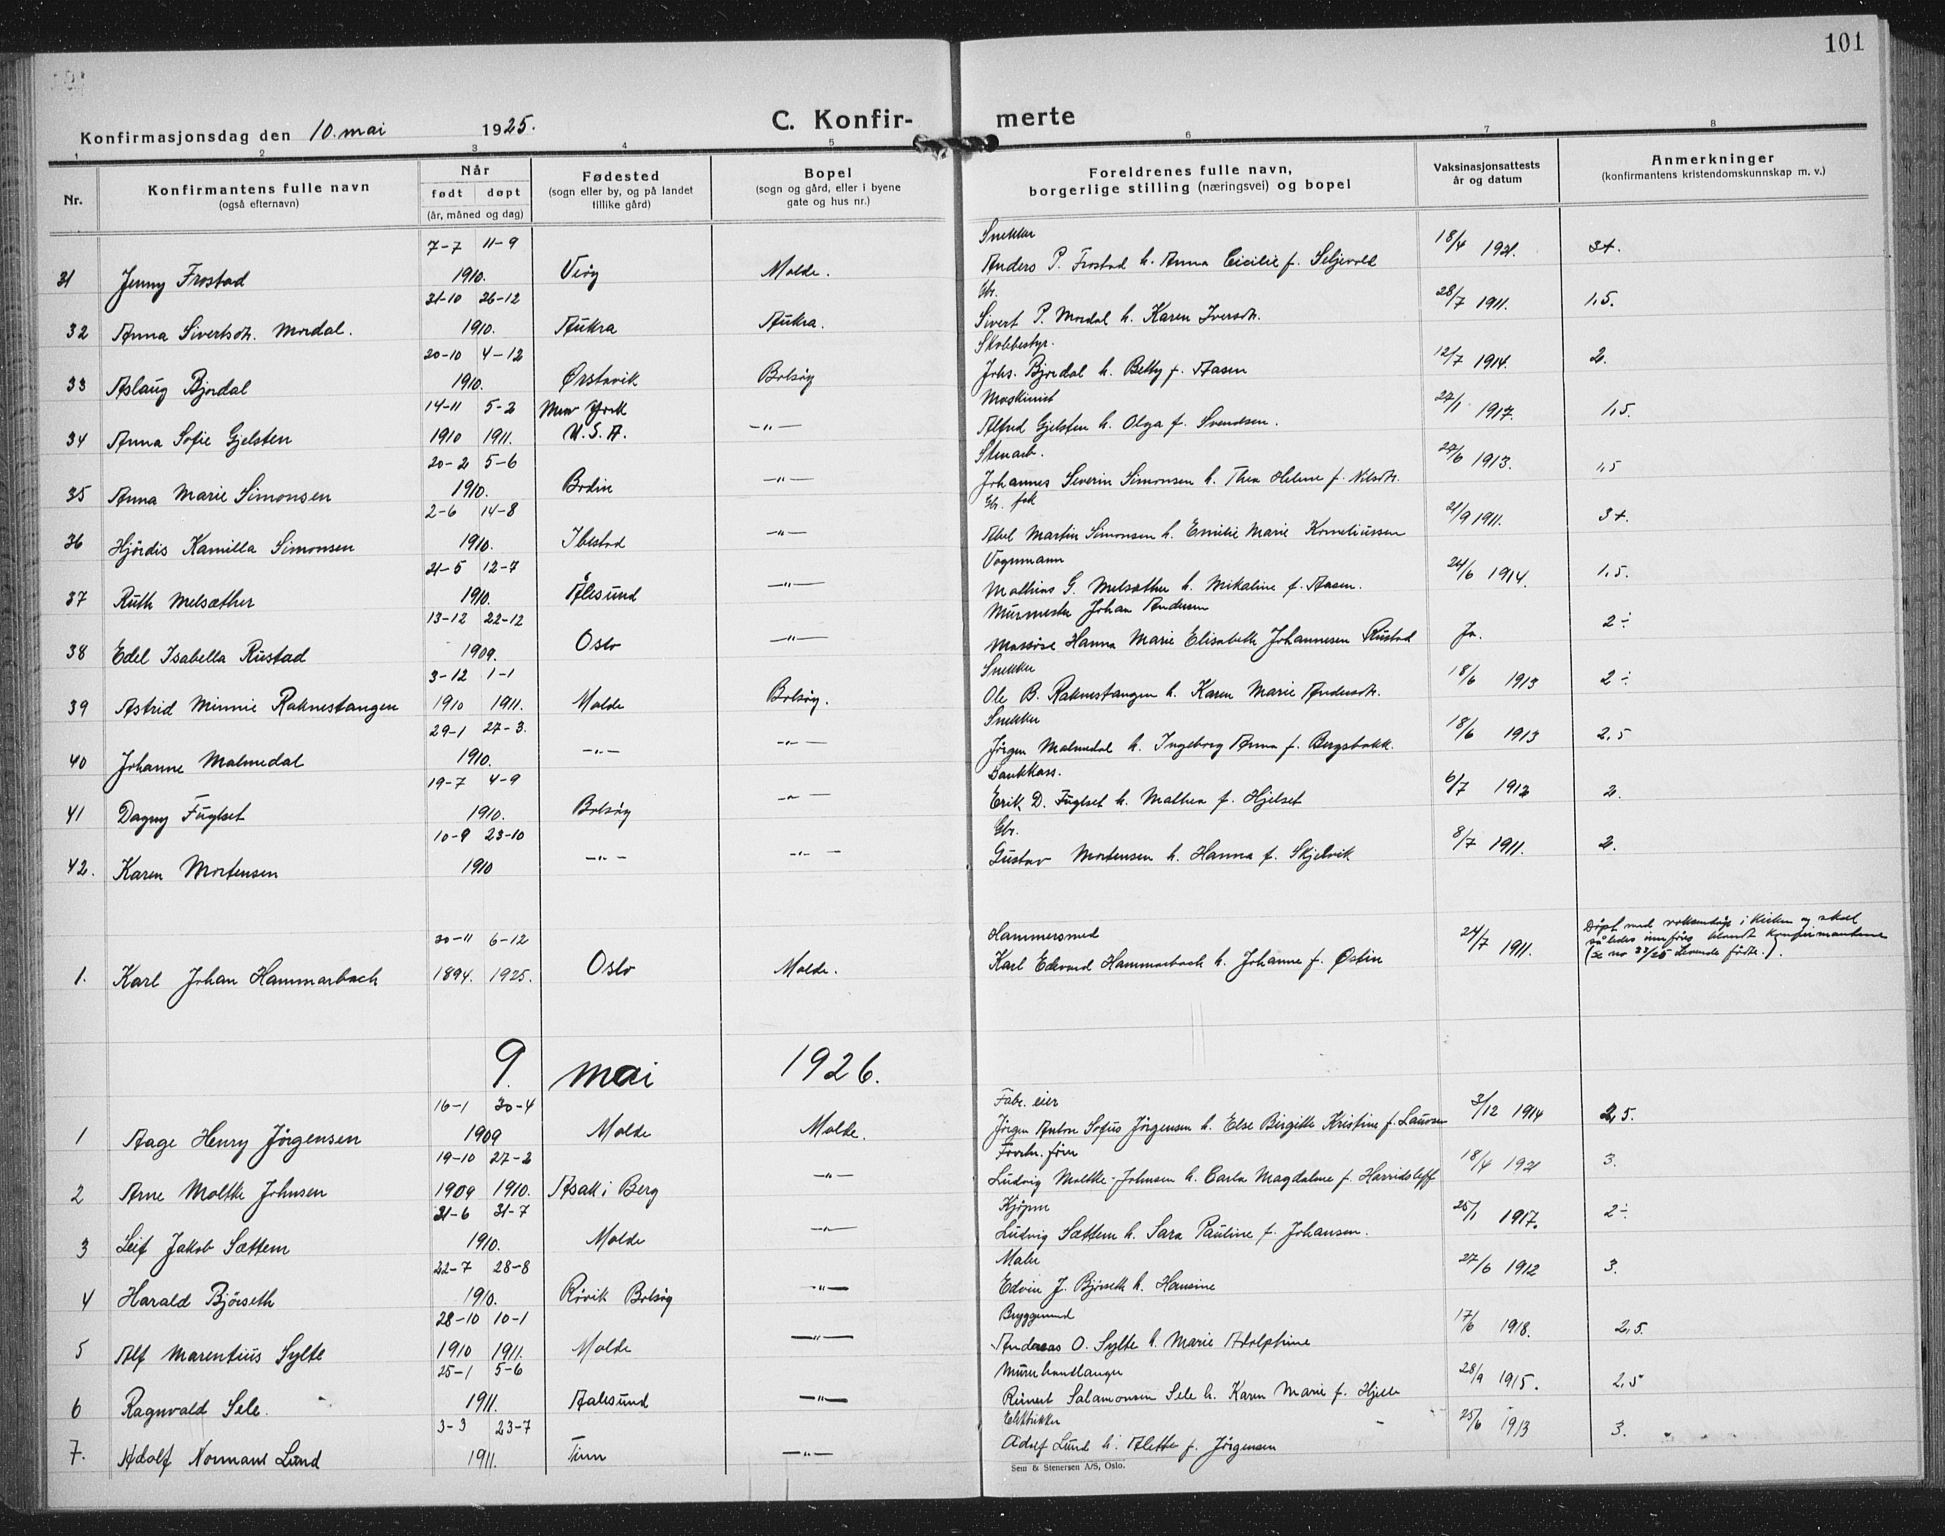 101
C. Konfirmerte
Konfirmasjonsdag den 10. mai 1925.
1 2 3 4 5 6 7 8
Nr. Konfirmantens fulle navn (også efternavn) Når født døpt (år, måned og dag) Fødested (sogn eller by, og på landet tillike gård) Bopel (sogn og gård, eller i byene gate og hus nr.) Foreldrenes fulle navn, borgerlige stilling (næringsvei) og bopel Vaksinasjonsattests år og datum Anmerkninger (konfirmantens kristendomskunnskap m. v.)
7-7 11-9 Snekker
31 Jenny Frostad 1910. Veøy Molde. Anders P. Frostad h. Anna Cicilie f. Seljevold 18/4 1921. 3+.
31-10 26-12 Gbr.
32 Anna Sivertsdtr. Mordal. 1910. Aukra Aukra. Sivert P. Mordal h. Karen Iversdtr. 28/7 1911. 1,5.
20-10 4-12 Skolebestyr.
33 Aslaug Bjordal 1910. Ørstavik Bolsøy Johs. Bjordal h. Betty f. Aasen 12/7 1914. 2.
14-11 5-2 New York Maskinist
34 Anna Sofie Gjelsten 1910 1911. U.S.A. -"- Alfred Gjelsten h. Olga f. Svendsen. 27/1 1917. 1,5.
20-2 5-6 Stenarb.
35 Anna Marie Simonsen 1910. Bodin -"- Johannes Severin Simonsen h. Thea Helene f. Nilsdtr. 27/6 1913. 1,5
2-6 14-8 Gbr. fisk
36 Hjördis Kamilla Simonsen 1910. Ibestad -"- Abel Martin Simonsen h. Emilie Marie Korneliussen 21/9 1911. 3+.
21-5 12-7 Vognmann
37 Ruth Melsæther 1910. Ålesund -"- Mathias G. Melsæther h. Mikaline f. Aasen. 24/6 1914. 1,5.
13-12 22-12 Murmester Johan Andersen
38 Edel Isabella Rustad 1909. Oslo -"- Massöse Hanna Marie Elisabeth Johannesen Rustad Ja. 2÷
3-12 1-1 Snekker
39 Astrid Minnie Raknestangen 1910 1911. Molde Bolsøy. Ole B. Raknestangen h. Karen Marie Andersdtr. 18/6 1913 2÷
29-1 27-3. Snekker
40 Johanne Malmedal 1910. -"- -"- Jörgen Malmedal h. Ingeborg Anna f. Bergsbakk. 18/6 1913 2,5
19-7 4-9 Bankkass.
41 Dagny Fuglset 1910. Bolsøy -"- Erik D. Fuglset h. Mathea f. Hjelset 6/7 1912 2.
10-9 23-10 Gbr.
42. Karen Mortensen 1910 -"- -"- Gustav Mortensen h. Hanna f. Skjelvik 8/7 1911. 2.
30-11 6-12 Hammersmed Döpt med voksendåp i kirken og skal således innføres blandt konfirmantene
1. Karl Johan Hammarbach 1894. 1925. Oslo Molde. Karl Edvard Hammarbach h. Johanne f. Østin 24/7 1911. (se no 33/25 Levende födte.).
9. mai 1926.
16-1 30-4 Fabr. eier
1 Aage Henry Jörgensen 1909 Molde Molde. Jörgen Anton Sofus Jörgensen h. Else Birgitte Kristine f. Laursen 3/12 1914 2,5.
19-10 27-2
2 Arne Moltke Johnsen 1909 1910. Asak i Berg -"- Ludvig Moltke-Johnsen h. Carla Magdalene f. 18/4 1921 3.
21-6 31-7 Kjøpm
3 Leif Jakob Sættem 1910. Molde -"- Ludvig Sættem h. Sara Pauline f. Johansen. 25/1 1917. 2÷
22-7 28-8 Maler
4 Harald Björseth 1910. Røvik Bolsøy -"- Edvin J. Bjørseth h. Hansine 27/6 1912 3.
28-10 10-1 Bryggemand
5 Alf Marentius Sylte 1910 1911. Molde -"- Andreas O. Sylte h. Marie Adolphine 17/6 1918. 2,5.
25-1 5-6 Murerhandlanger
6 Ragnvald Sele. 1911. Aalesund -"- Reinert Salamonsen Sele h. Karen Marie f. Hjelle 28/9 1915. 2,5
3-3 23-7 Elektriker
7. Adolf Normann Lund 1911. Tinn -"- Adolf Lund h. Alette f. Jörgensen 25/6 1913 3.
Sem & Stenersen A/S, Oslo.